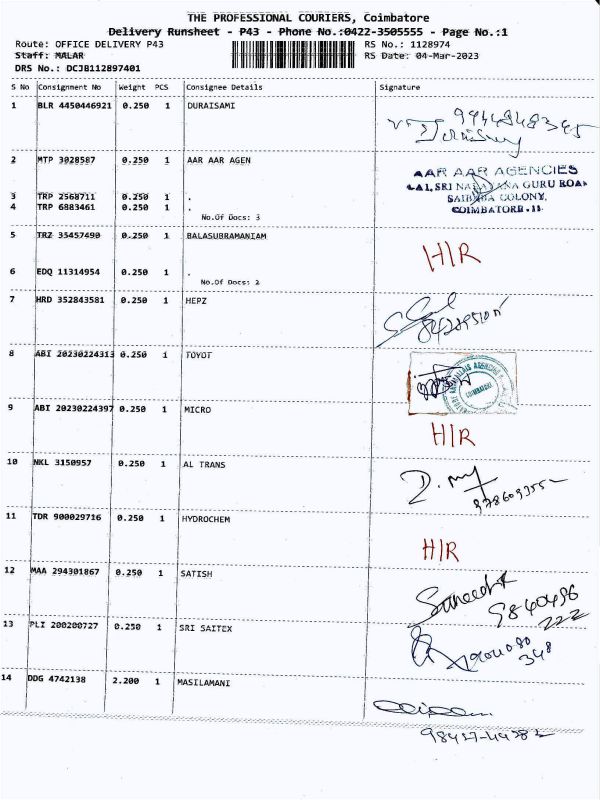 THE PROFESSIONAL COURIERS, Coimbatore
Delivery Runsheet - P43 - Phone No.:0422-3505555 - Page No.:1
Route: OFFICE DELIVERY P43
RS No.: 1128974
Staff: MALAR
RS Date: 04-Mar-2023
DRS No.: DCJB112897401
S No Consignment No Weight PCS Consignee Details Signature
1 BLR 4450446921 0.250 1 DURAISAMI
2 MTP 3028587 0.250 1 AAR AAR AGEN
AAR AAR AGENCIES
SRI NARAYANA GURU ROAD
SAIBABA COLONY,
COIMBATORE.11
3 TRP 2568711 0.250 1 .
4 TRP 6883461 0.250 1 .
No.Of Docs: 3
5 TRZ 35457490 0.250 1 BALASUBRAMANIAM
H/R
6 EDQ 11314954 0.250 1 .
No.Of Docs: 2
7 HRD 352843581 0.250 1 HEPZ
8 ABI 20230224313 0.250 1 TOYOT
COIMBATORE
9 ABI 20230224397 0.250 1 MICRO
H/R
10 NKL 3150957 0.250 1 AL TRANS
11 TDR 900029716 0.250 1 HYDROCHEM
H/R
12 MAA 294301867 0.250 1 SATISH
9840496
222
13 PLI 200200727 0.250 1 SRI SAITEX
348
14 DDG 4742138 2.200 1 MASILAMANI